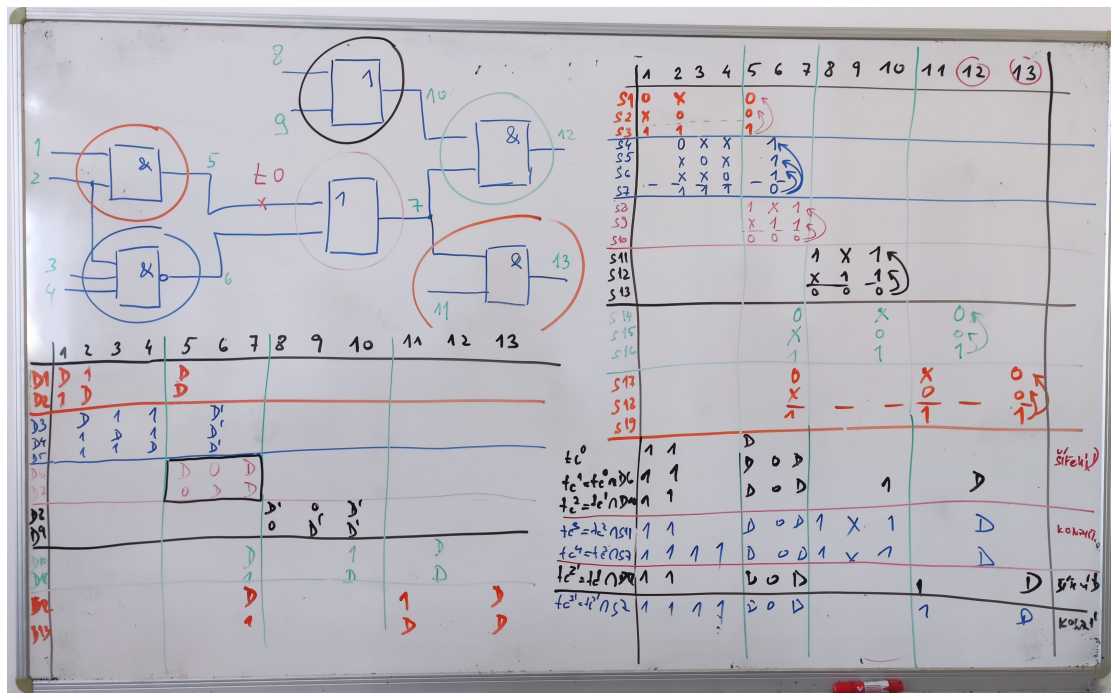 8
1
10
9
&
12
1
&
5
2
ƒ0
x
1
7
3
&
6
4
&
13
11
1 2 3 4 5 6 7 8 9 10 11 12 13
D1 D 1 D
D2 1 D D
D3 D 1 1 D'
D4 1 D 1 D'
D5 1 1 D D'
D6 D 0 D
D7 0 D D
D' 0 D'
D9 0 D' D'
D 1 D
1 D D
D 1 D
D13 1 D D
1 2 3 4 5 6 7 8 9 10 11 12 13
S1 0 x 0
S2 x 0 0
S3 1 1 1
S4 0 x x 1
S5 x 0 x 1
S6 x x 0 1
S7 1 1 1 0
S8 1 x 1
S9 x 1 1
S10 0 0 0
S11 1 X 1
S12 x 1 1
S13 0 0 0
S14 0 x 0
S15 X 0 0
S16 1 1 1
S17 0 x 0
S18 x 0 0
S19 1 - - - 1 - 1
tc⁰ 1 1 D
tc¹=tc⁰∩D6 1 1 D 0 D
1 1 D 0 D 1 D
tc³=tc²∩S11 1 1 D 0 D 1 X 1 D
tc⁴=tc³∩S7 1 1 1 1 D 0 D 1 x 1 D
1 1 D 0 D 1 D
1 1 1 1 D 0 D 1 D